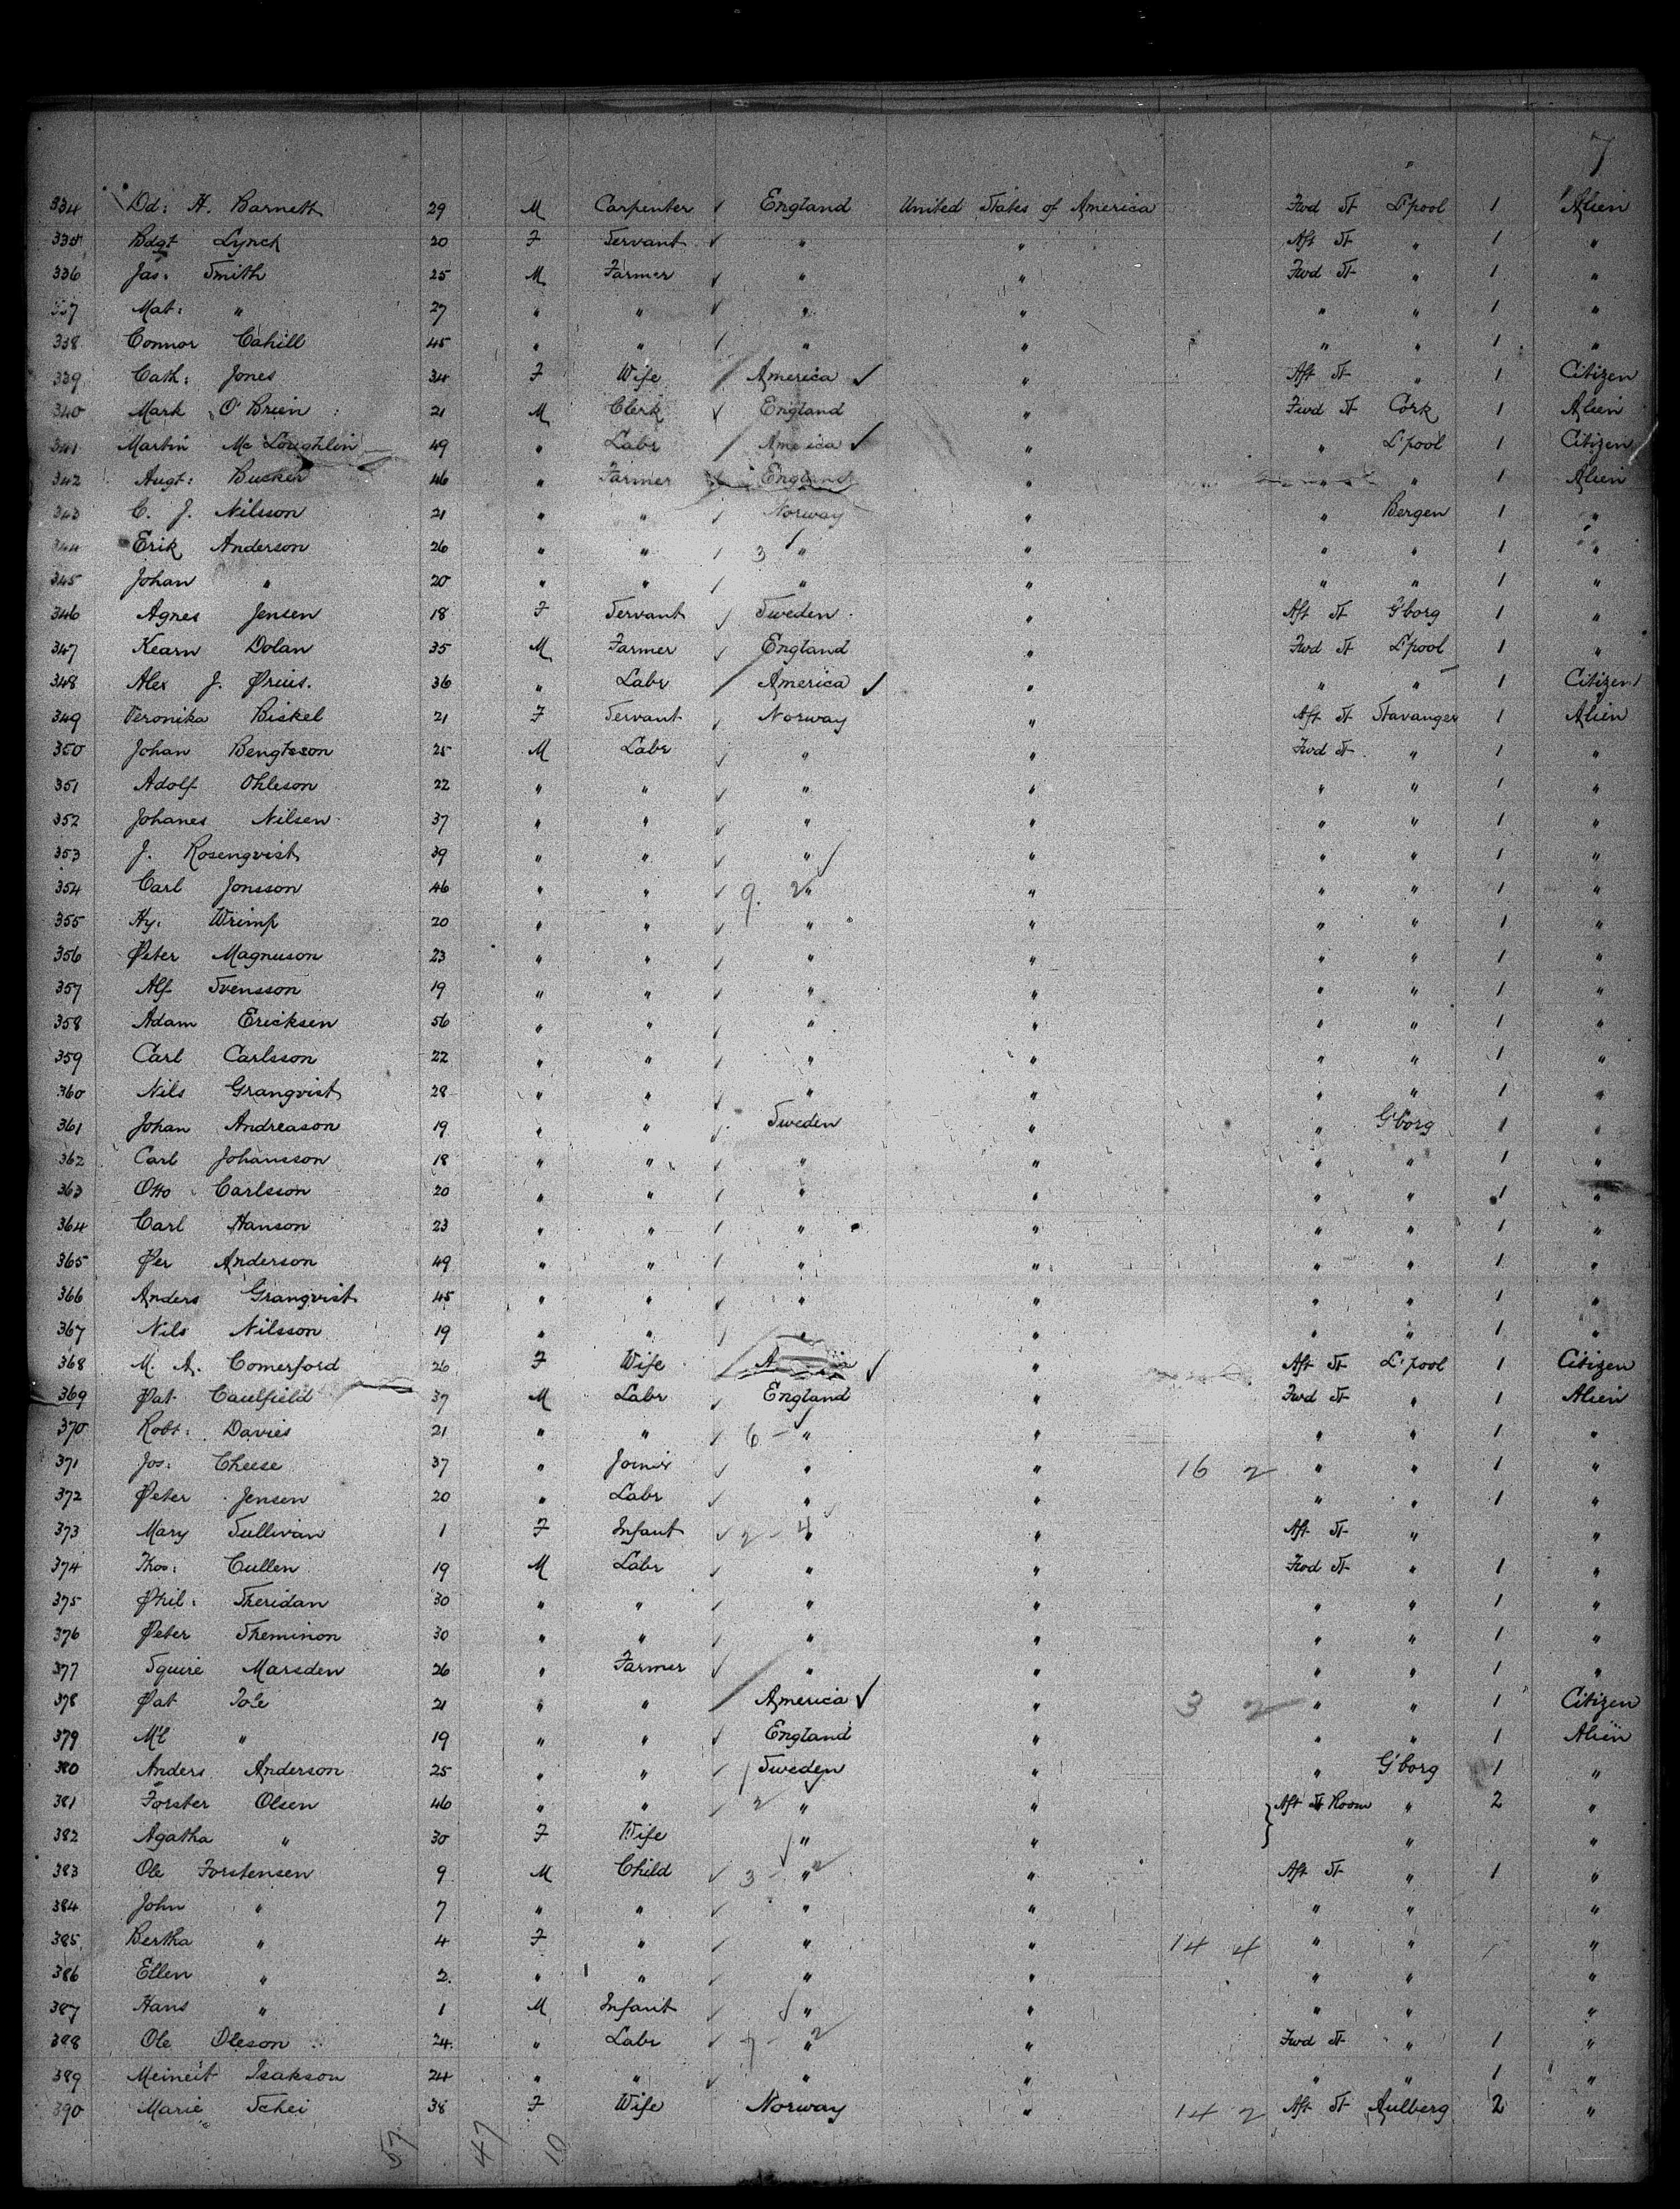 7
"
334 Dd: H. Barnett 29 M Carpenter ✓ England United States of America Fwd St L'pool 1 Alien
335 Bdgt Lynch 20 F Servant ✓ " " Aft St " 1 "
336 Jas: Smith 25 M Farmer ✓ " " Fwd St " 1 "
337 Mat: " 27 " " ✓ " " " " 1 "
338 Connor Cahill 45 " " ✓ " " " " 1 "
339 Cath: Jones 34 F Wife / America ✓ " Aft St " 1 Citizen
340 Mark O'Brien 21 M Clerk ✓ England " Fwd St Cork 1 Alien
341 Martin Mc Loughlin 49 " Labr / America ✓ " " L'pool 1 Citizen
342 Augt: Bucker 46 " Farmer England " " " 1 Alien
343 C. J. Nilsson 21 " " ✓ Norway " " Bergen 1 "
344 Erik Anderson 26 " " ✓ 3 " " " " 1 "
345 Johan " 20 " " ✓ " " " " 1 "
346 Agnes Jensen 18 F Servant ✓ Sweden " Aft St G'borg 1 "
347 Kearn Dolan 35 M Farmer ✓ England " Fwd St L'pool 1 "
348 Alex J. Prius. 36 " Labr / America ✓ " " " 1 Citizen
349 Veronika Biskel 21 F Servant ✓ Norway " Aft St Stavanger 1 Alien
350 Johan Bengtsson 25 M Labr ✓ " " Fwd St " 1 "
351 Adolf Ohleson 22 " " ✓ " " " " 1 "
352 Johanes Nilsen 37 " " ✓ " " " " 1 "
353 J. Rosenqvist 39 " " ✓ " " " " 1 "
354 Carl Jonsson 46 " " ✓ 9. 2 " " " " 1 "
355 Hy: Wrimp 20 " " ✓ " " " " 1 "
356 Peter Magnuson 23 " " ✓ " " " " 1 "
357 Alf Svensson 19 " " ✓ " " " " 1 "
358 Adam Ericksen 56 " " ✓ " " " " 1 "
359 Carl Carlsson 22 " " ✓ " " " " 1 "
360 Nils Granqvist 28 " " ✓ " " " " 1 "
361 Johan Andreason 19 " " ✓ Sweden " " G'borg 1 "
362 Carl Johansson 18 " " ✓ " " " " 1 "
363 Otto Carlsson 20 " " ✓ " " " " 1 "
364 Carl Hanson 23 " " ✓ " " " " 1 "
365 Per Anderson 49 " " ✓ " " " " 1 "
366 Anders Granqvist 45 " " ✓ " " " " 1 "
367 Nils Nilsson 19 " " ✓ " " " " 1 "
368 M. A. Comerford 26 F Wife / ✓ " Aft St L'pool 1 Citizen
369 Pat Caulfield 37 M Labr ✓ England " Fwd St " 1 Alien
370 Robt: Davies 21 " " ✓ 6 - " " " " 1 "
371 Jos: Cheese 37 " Joiner ✓ " " 16 2 " " 1 "
372 Peter Jensen 20 " Labr ✓ " " " " 1 "
373 Mary Sullivan 1 F Infant ✓ 2 - 4 " " Aft St " "
374 Thos: Cullen 19 M Labr ✓ " " Fwd St " 1 "
375 Phil: Sheridan 30 " " ✓ " " " " 1 "
376 Peter Sheminon 30 " " ✓ " " " " 1 "
377 Squire Marsden 26 " Farmer ✓ " " " " 1 "
378 Pat 21 " " / America ✓ " 3 2 " " 1 Citizen
379 Ml " 19 " " ✓ England " " " 1 Alien
380 Anders Anderson 25 " " ✓ Sweden " " G'borg 1 "
381 Forster Olsen 46 " " ✓ 2 " " Aft St Room " 2 "
382 Agatha " 30 F Wife " " " "
383 Ole Torstensen 9 M Child ✓ 3 - 2 " " Aft St " 1 "
384 John " 7 " " ✓ " " " " "
385 Bertha " 4 F " ✓ " " 14 4 " " "
386 Ellen " 2. " " ✓ " " " " "
387 Hans " 1 M Infant ✓ " " " " "
388 Ole Oleson 24. " Labr ✓ 7 - 2 " " Fwd St " 1 "
389 Meineit Isakson 24 " " ✓ " " " " 1 "
390 Marie Schei 38 F Wife Norway " 14 2 Aft St Aulberg 2 "
57 47 10